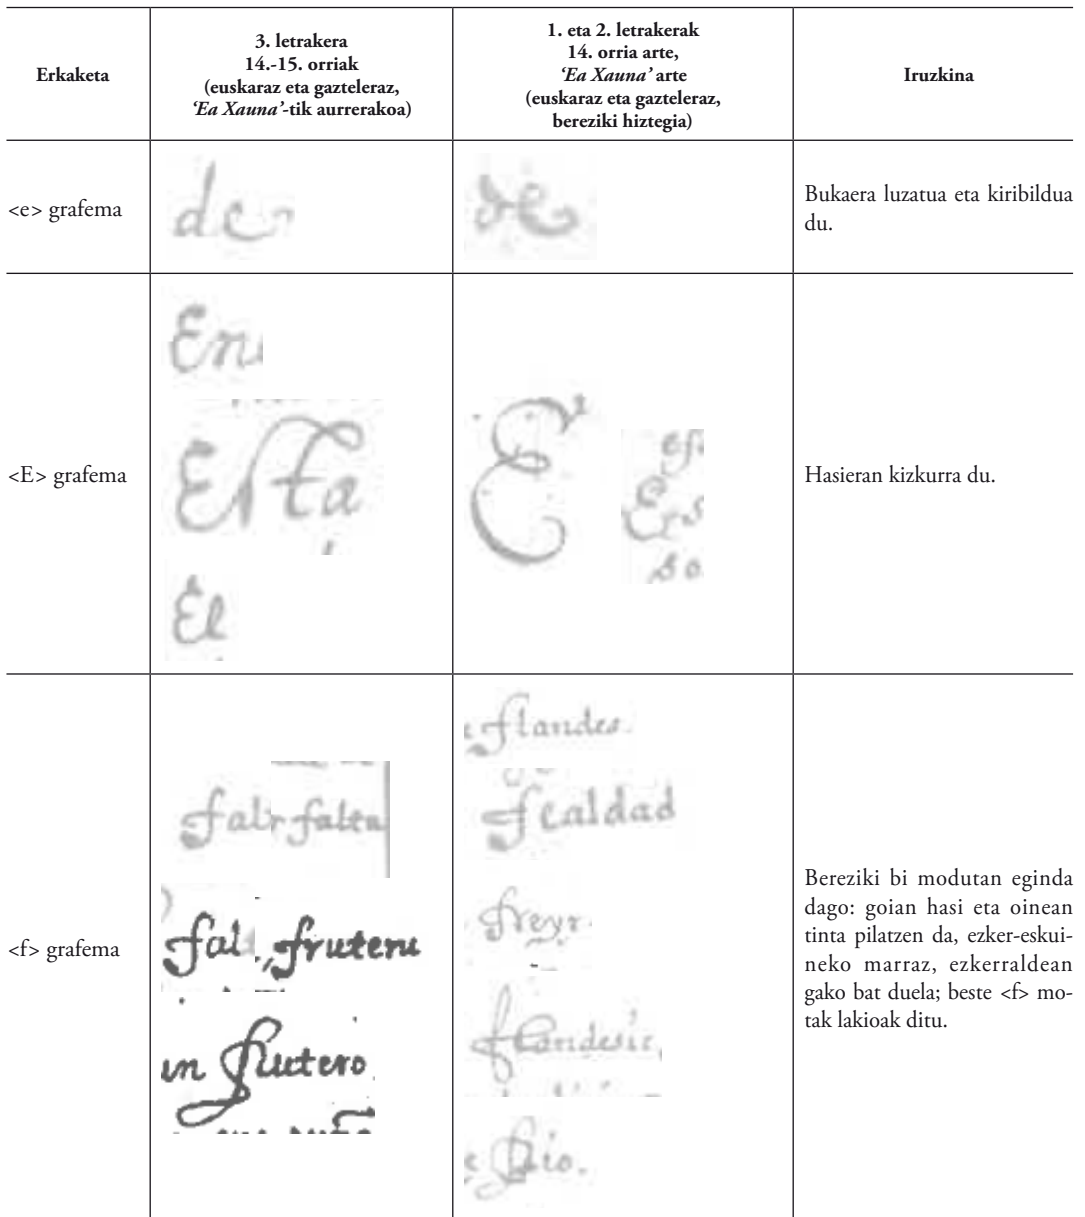 Erkaketa
3. letrakera
14.-15. orriak
(euskaraz eta gazteleraz,
‘Ea Xauna’-tik aurrerakoa)
1. eta 2. letrakerak
14. orria arte,
‘Ea Xauna’ arte
(euskaraz eta gazteleraz,
bereziki hiztegia)
Iruzkina
<e> grafema
de
de
Bukaera luzatua eta kiribildua
du.
<E> grafema
En
Esta
El
E
Hasieran kizkurra du.
<f> grafema
fal
falta
fal
fruteru
un frutero
flandes.
fealdad
freyr.
flandesir
frio.
Bereziki bi modutan eginda
dago: goian hasi eta oinean
tinta pilatzen da, ezker-eskui-
neko marraz, ezkerraldean
gako bat duela; beste <f> mo-
tak lakioak ditu.